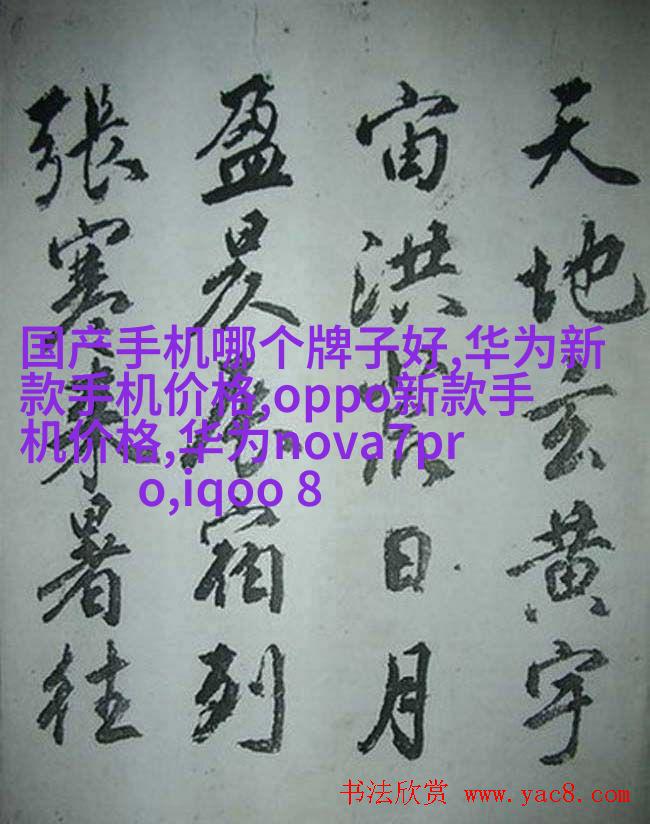 天地玄黄宇
宙洪荒日月
盈昃辰宿列
張寒来暑往
国产手机哪个牌子好,华为新
款手机价格,oppo新款手
机价格,华为nova7pr
o,iqoo 8
书法欣赏 www.yac8.com